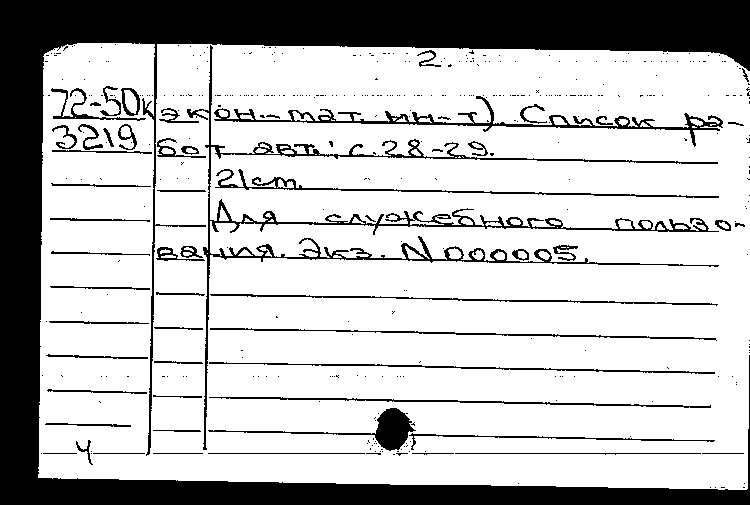 2.
72-50к экон-мат. ин-т). Список ра-
3219 бот авт.: с. 28-29.
21 cm.
Для служебного пользо-
вания. Экз. N 000005.
4